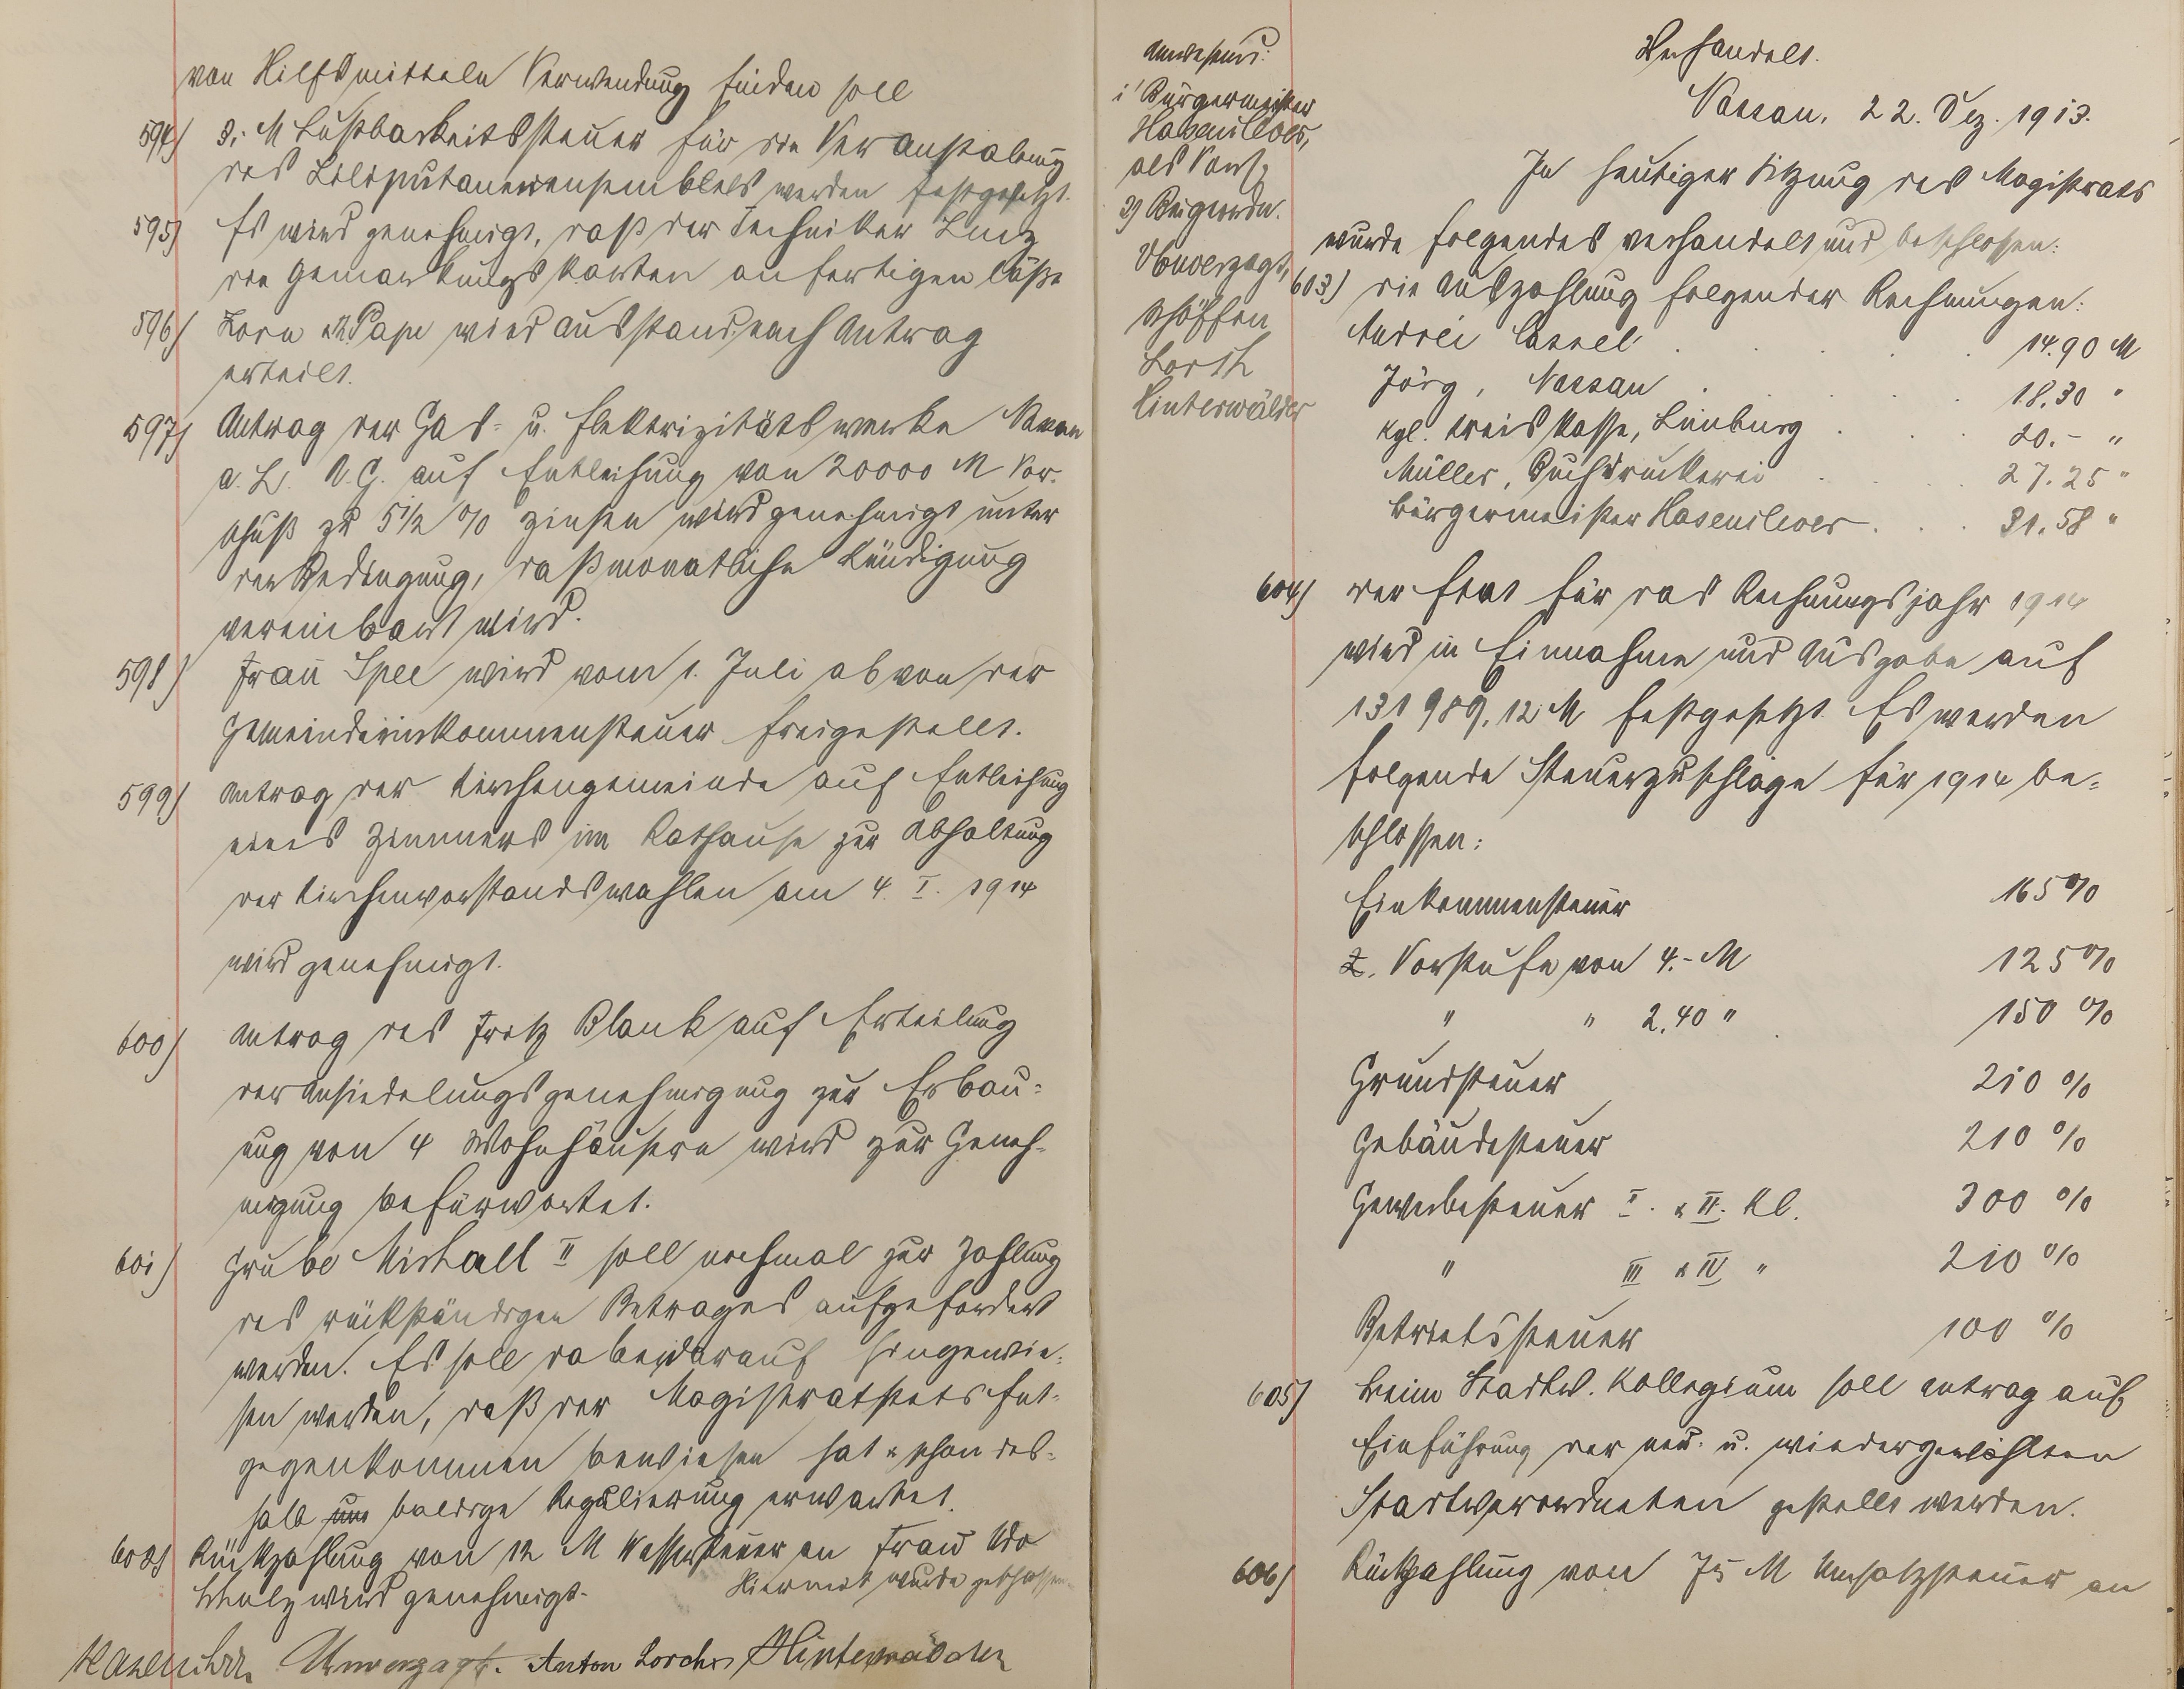 von Hilfsmitteln Verwendung finden soll
594) 3,- M Lustbarkeitssteuer für die Veranstaltung
des Liliputanerensembles werden festgesetzt.
595) Es wird genehmigt, daß der Techniker Linz
die Gemarkungskarten anfertigen läßt
596) Zorn & Pape wird Ausstand nach Antrag
erteilt.
597) Antrag der Gas- u. Elektrizitätswerke Nassau
a. L. A.G. auf Entleihung von 20000 M Vor-
schuß zu 5 1/2 % Zinsen wird genehmigt unter
der Bedingung, daß monatliche Kündigung
vereinbart wird.
598) Frau Spee wird vom 1. Juli ab von der
Gemeindeeinkommensteuer freigestellt.
599) Antrag der Kirchengemeinde auf Entleihung
eines Zimmers im Rathause zur Abhaltung
der Kirchenvorstandswahlen am 4. I. 1914
wird genehmigt.
600) Antrag des Fritz Blank auf Erteilung
der Ansiedelungsgenehmigung zur Erbau-
ung von 4 Wohnhäusern wird zur Geneh-
migung befürwortet.
601) Grube Mishall II soll nochmal zur Zahlung
des rückständigen Betrages aufgefordert
werden. Es soll dabei darauf hingewie-
sen werden, daß der Magistrat stets Ent-
gegenkommen bewiesen hat & schon des-
halb um baldige Regulierung erwartet.
602) Rückzahlung von 12 M Wassersteuer an Frau Udo
Schulz wird genehmigt.
Hiermit wurde geschlossen.
Hasenclever Unverzagt. Anton Lorch Hinterwälder
Anwesend:
1) Bürgermeister
Hasenclever,
als Vors.
2) Beigeordn.
Unverzagt,
Schöffen
Lorch
Hinterwälder
Verhandelt.
Nassau, 22. Dez. 1913.
In heutiger Sitzung des Magistrats
wurde folgendes verhandelt und beschlossen:
603) die Auszahlung folgender Rechnungen:
Andréi Cassel . . . . 14.90 M
Jörg, Nassau . . . . 18.30 "
Kgl. Kreiskasse, Limburg . . . 20.- "
Müller, Buchdruckerei . . . 27.25 "
Bürgermeister Hasenclever . . . 31.58 "
604) der Etat für das Rechnungsjahr 1914
wird in Einnahme und Ausgabe auf
131989,12 M festgesetzt. Es werden
folgende Steuerzuschläge für 1914 be-
schlossen:
Einkommensteuer 165 %
z. Vorstufe von 4.- M 125 %
" " 2,40 " 150 %
Grundsteuer 210 %
Gebäudesteuer 210 %
Gewerbesteuer I. & II. Kl. 300 %
" III & IV " 210 %
Betriebssteuer 100 %
605) Beim Stadtv. Kollegium soll Antrag auf
Einführung der neu- u. wiedergewählten
Stadtverordneten gestellt werden.
606) Rückzahlung von 75 M Umsatzsteuer an